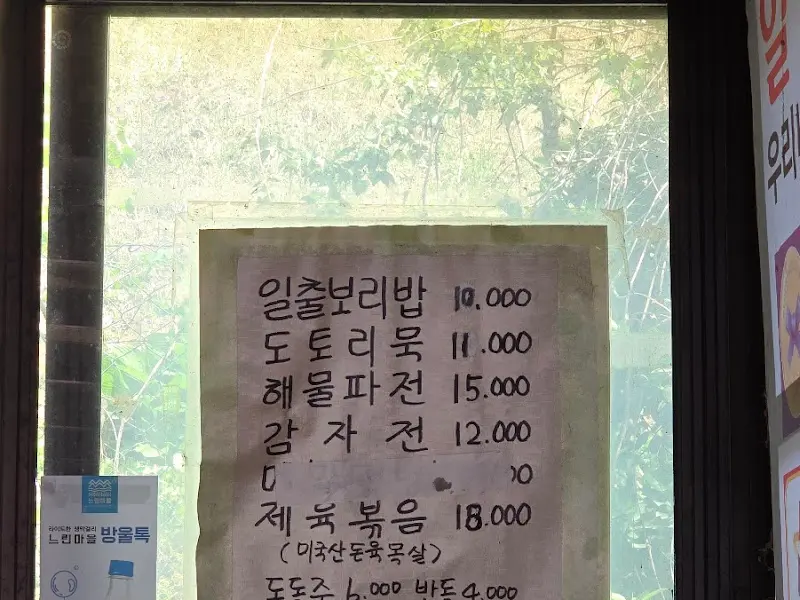 일출보리밥 10.000
도토리묵 11.000
해물파전 15.000
감자전 12.000
제육볶음 18.000
(미국산돈육목살)
동동주 6.000 반동 4.000
라이트한 생막걸리
느린마을 방울톡
우리